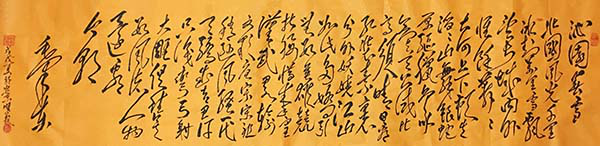 沁園春雪
北國風光千里
冰封萬里雪飄
望長城内外
惟餘莽莽
大河上下頓失
滔滔山舞銀蛇
原馳蠟象欲與
天公試比高
須晴日看
紅裝素裹
分外妖嬈江山
如此多嬌引
無數英雄競
折腰惜秦皇
漢武略輸
文采唐宗宋祖
稍遜風騷一代
天驕成吉思汗
只識彎弓射
大雕俱往矣
數風流人物
還看
今朝
毛澤東